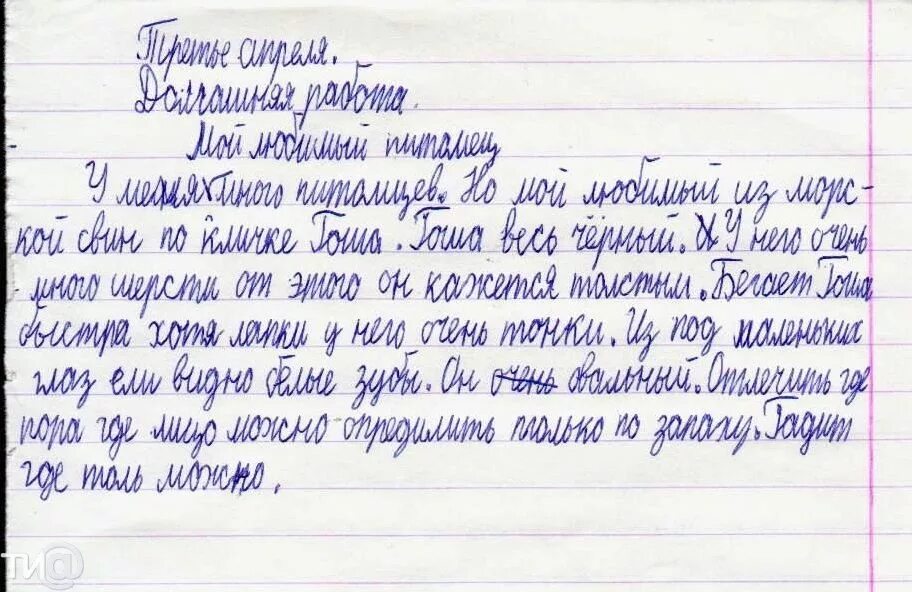 Третье апреля.
Домашняя работа.
Мой любимый питомец
У меня много питомцев. Но мой любимый из морс-
кой свин по кличке Гоша. Гоша весь чёрный. У него очень
много шерсти от этого он кажется толстым. Бегает Гоша
быстра хотя лапки у него очень тонки. Из под маленьких
глаз ели видно белые зубы. Он очень овальный. Отлечить где
пора где лицо можно опредилить только по запаху. Гадит
где толь можно.
ТИ@